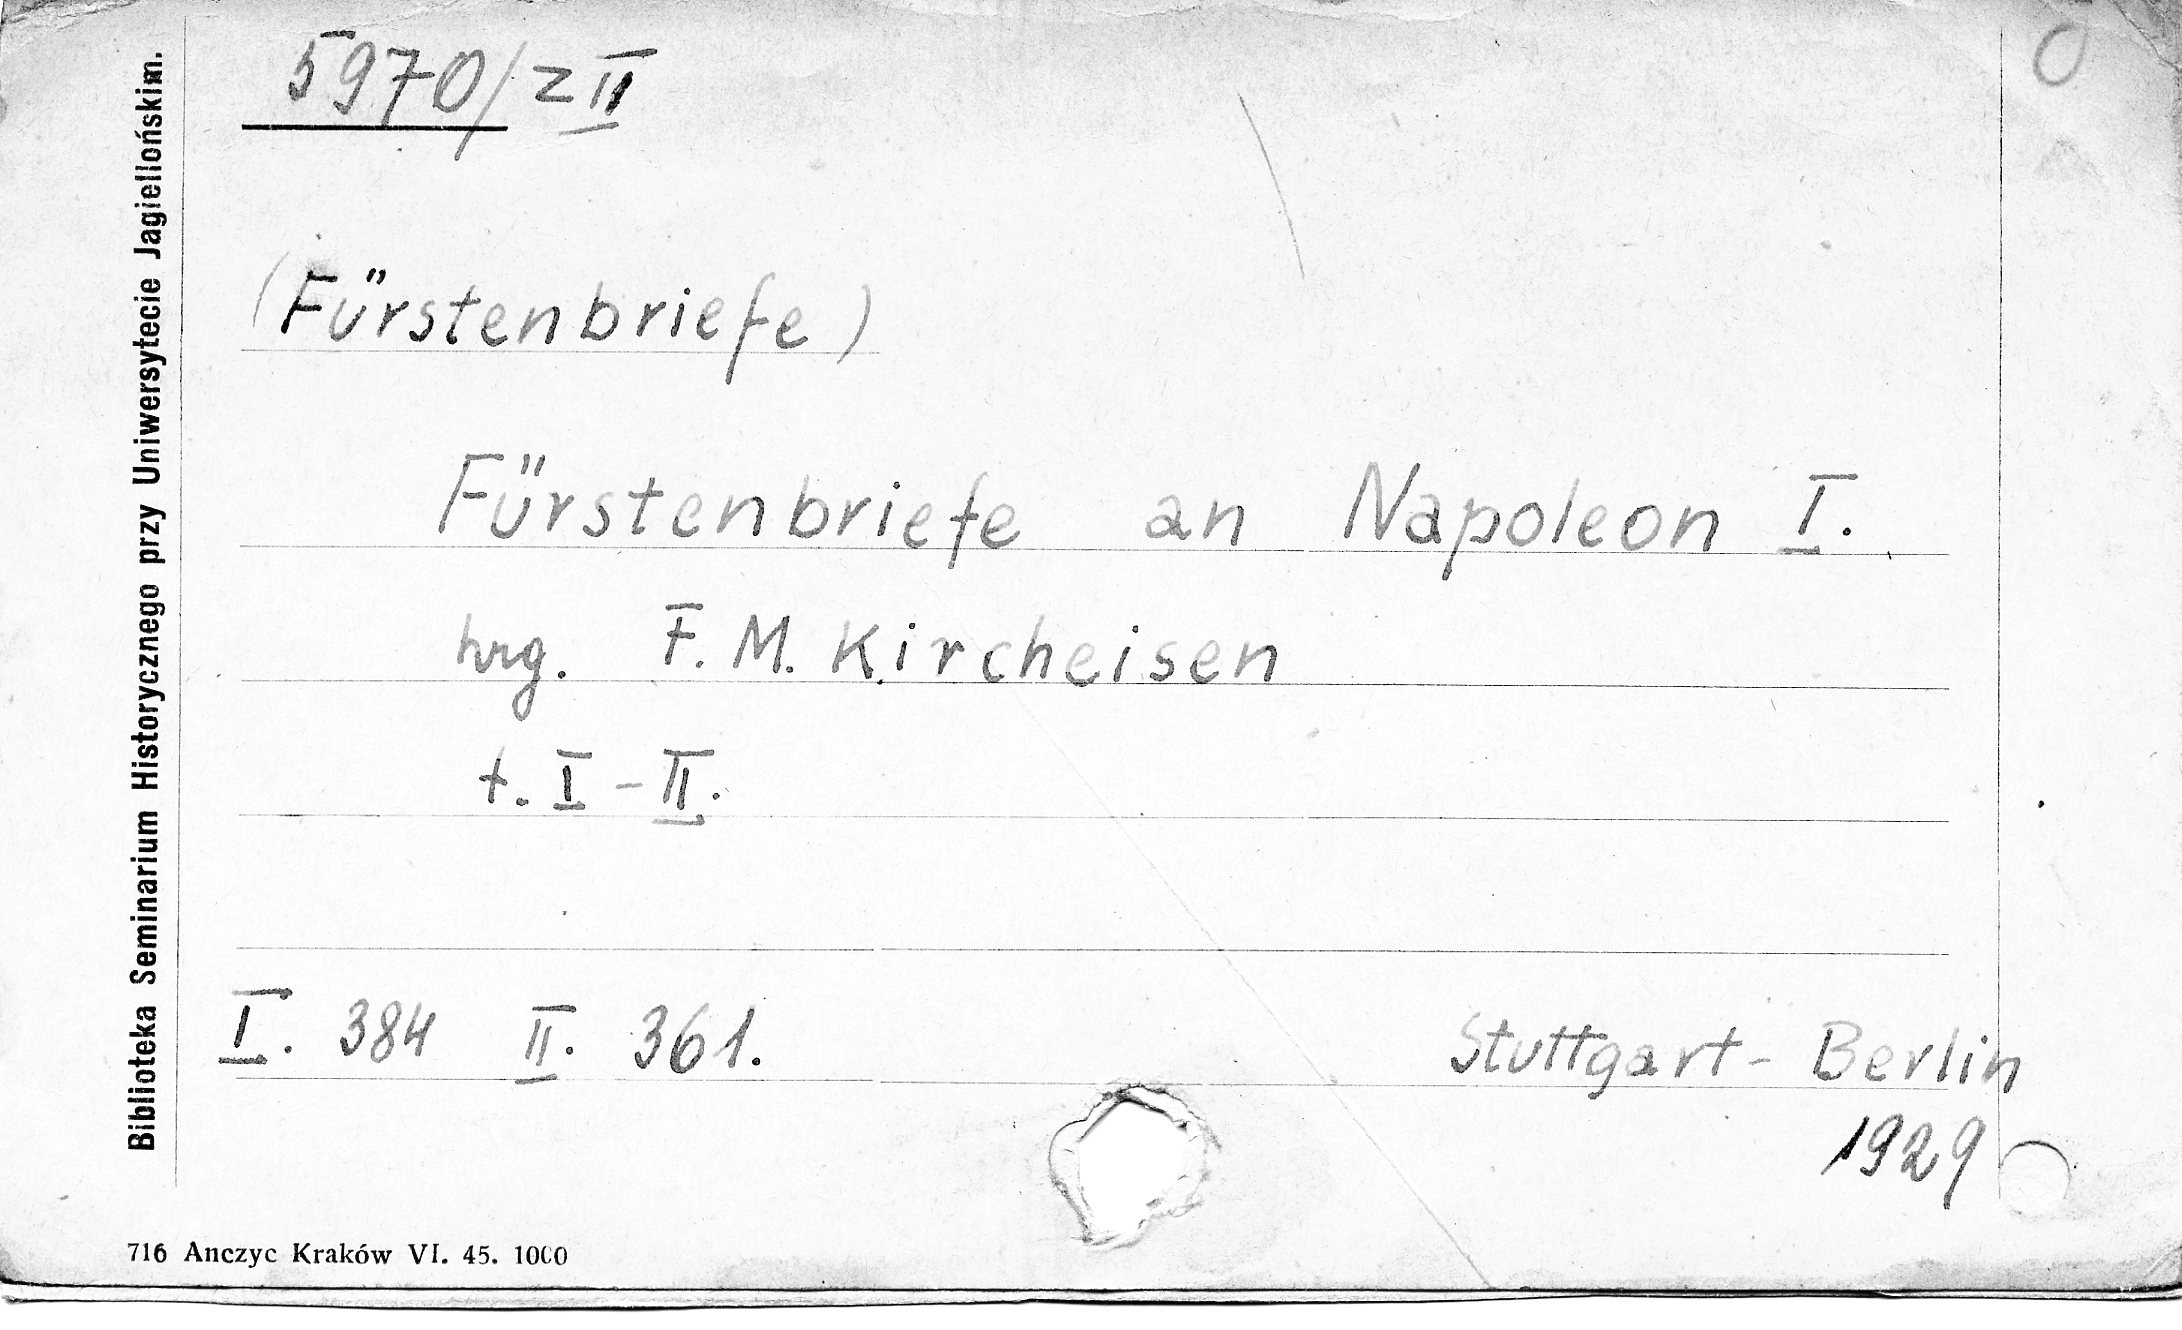 5970/z II
Biblioteka Seminarium Historycznego przy Uniwersytecie Jagiellońskim.
(Fürstenbriefe)
Fürstenbriefe an Napoleon I.
hrg. F. M. Kircheisen
t. I - II.
I. 384 II. 361.
Stuttgart - Berlin
1929
716 Anczyc Kraków VI. 45. 1000